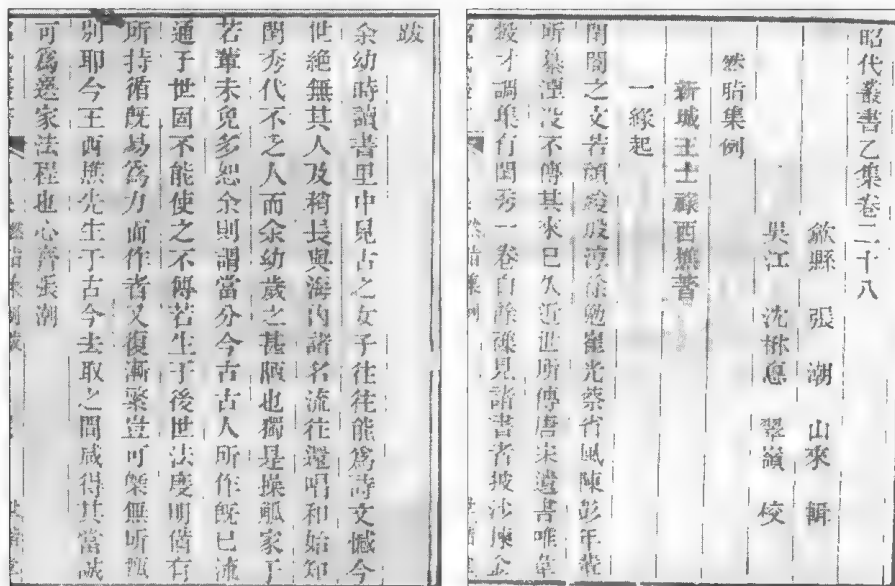 昭代叢書乙集卷二十八
歙縣 張 潮 山來 輯
吳江 沈楙悳 翠嶺 校
然脂集例
新城王士祿西樵著
一緣起
閨閤之文若顏竣殷淳徐勉崔光蔡省風陳彭年輩
所纂湮没不傳其來已久近世所傳唐宋遺書唯韋
縠才調集有閨秀一卷自餘磼見諸書者披沙揀金
跋
余幼時讀書里中見古之女子往往能爲詩文憾今
世絶無其人及稍長與海内諸名流往還唱和始知
閨秀代不乏人而余幼歲之甚陋也獨是操觚家于
若輩未免多恕余則謂當分今古古人所作既已流
通于世固不能使之不傳若生于後世法度明備有
所持循既易爲力而作者又復漸繁豈可槩無所甄
別耶今王西樵先生于古今去取之間咸得其當誠
可爲選家法程也心齋張潮